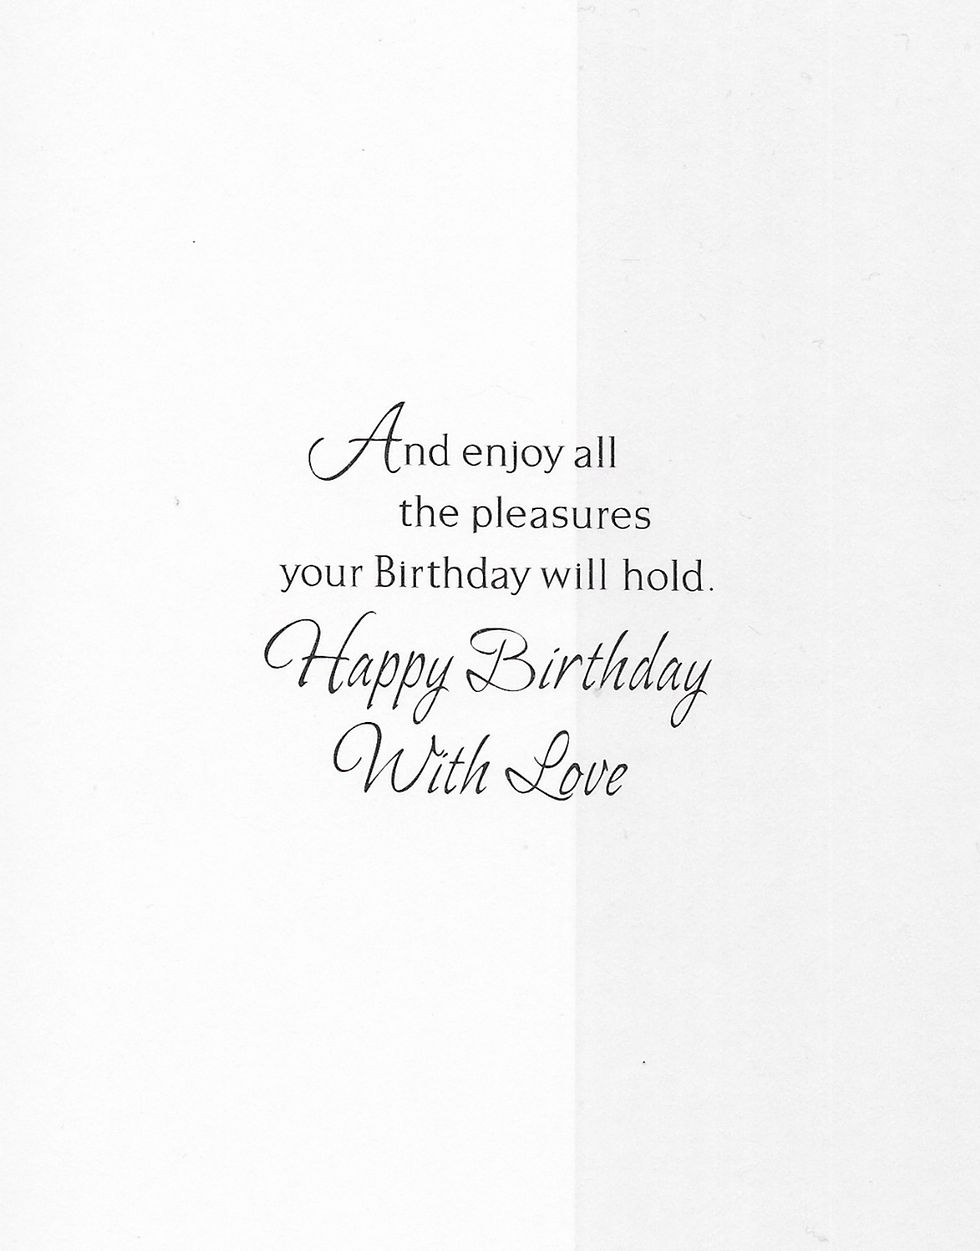 And enjoy all
the pleasures
your Birthday will hold.
Happy Birthday
With Love